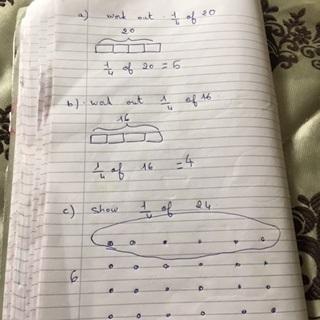 a) work out 1/4 of 20
20
1/4 of 20 = 5
b) work out 1/4 of 16
16
1/4 of 16 = 4
c) show 1/4 of 24
6